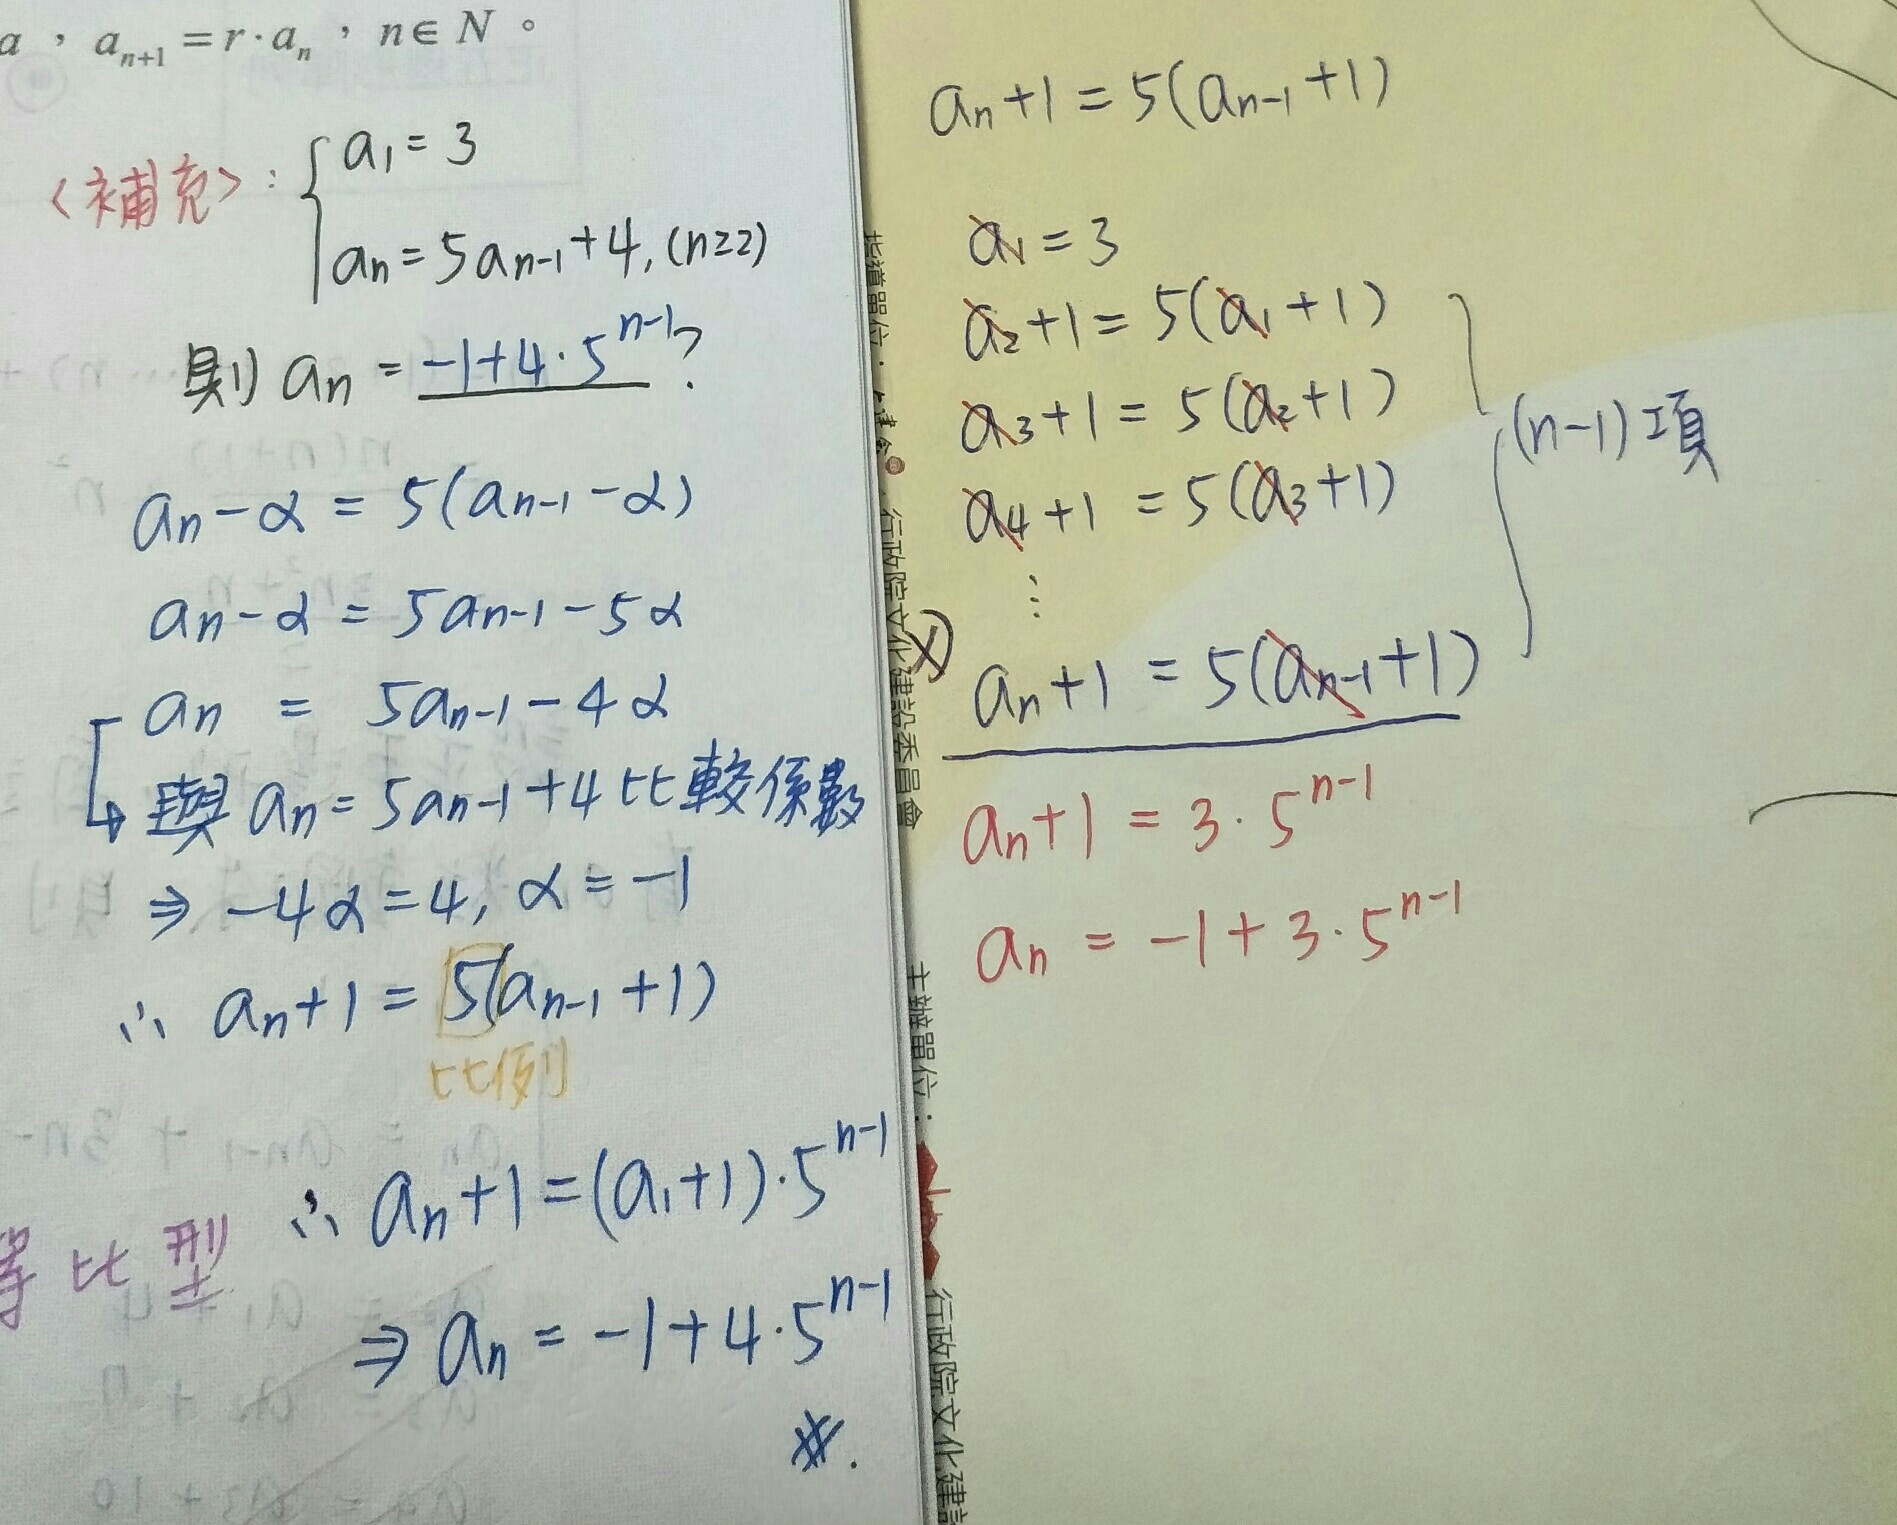 a，aₙ₊₁ = r·aₙ，n∈N。
<補充>：{ a₁ = 3
aₙ = 5aₙ₋₁+4, (n≥2)
則 aₙ = -1+4·5ⁿ⁻¹?
aₙ-α = 5(aₙ₋₁-α)
aₙ-α = 5aₙ₋₁-5α
aₙ = 5aₙ₋₁-4α
↳ 與 aₙ = 5aₙ₋₁+4 比較係數
⇒ -4α = 4, α = -1
∴ aₙ+1 = 5(aₙ₋₁+1)
比例
∴ aₙ+1 = (a₁+1)·5ⁿ⁻¹
等比型
⇒ aₙ = -1+4·5ⁿ⁻¹
※.
aₙ+1 = 5(aₙ₋₁+1)
a₁ = 3
a₂+1 = 5(a₁+1)
a₃+1 = 5(a₂+1)
(n-1)項
a₄+1 = 5(a₃+1)
⋮
×) aₙ+1 = 5(aₙ₋₁+1)
aₙ+1 = 3·5ⁿ⁻¹
aₙ = -1+3·5ⁿ⁻¹
指導單位：
行政院文化建設委員會
主辦單位：
行政院文化建設